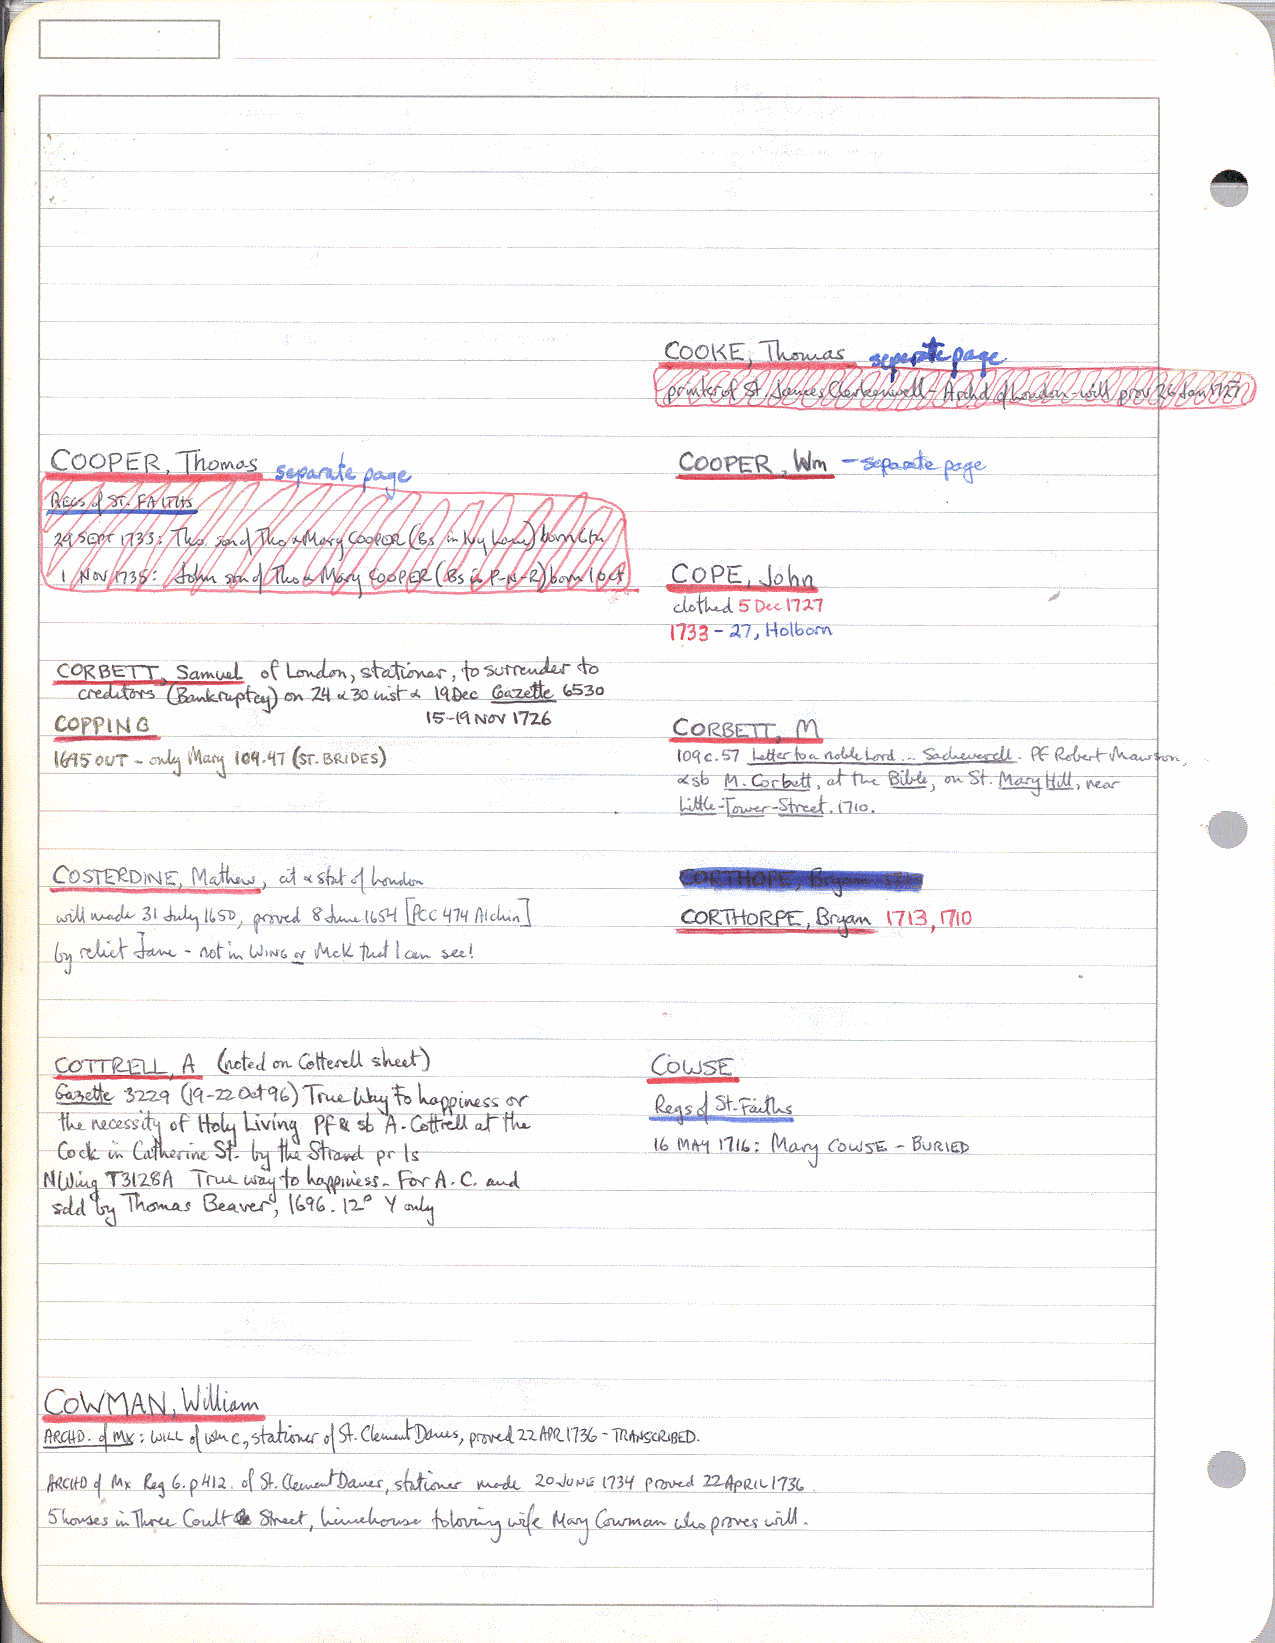 COOKE, Thomas separate page
printer of St. James Clerkenwell - Archd of London - will prov 26 Jan 1727
COOPER, Thomas separate page
REGS of ST. FAITHS
29 SEPT 1733: Tho. son of Tho & Mary COOPER (Bs in Ivy Lane) born 6th
1 NOV 1735: John son of Tho & Mary COOPER (Bs in P-N-R) born 1 Oct
COOPER, Wm - separate page
COPE, John
clothed 5 Dec 1727
1733 - 27, Holborn
CORBETT, Samuel of London, stationer, to surrender to
creditors (Bankruptcy) on 24 & 30 inst & 19 Dec Gazette 6530
15-19 NOV 1726
COPPING
1695 OUT - only Mary 109.47 (ST. BRIDES)
CORBETT, M
109c.57 Letter to a noble Lord ... Sacheverell. PF Robert Mawson,
& sb M. Corbett, at the Bible, on St. Mary Hill, near
Little-Tower-Street. 1710.
COSTERDINE, Mathew, cit & stat of London
will made 31 July 1650, proved 8 June 1654 [PCC 474 Alchin]
by relict Jane - not in WING or McK that I can see!
CORTHOPE, Bryam
CORTHORPE, Bryam 1713, 1710
COTTRELL, A (noted on Cotterell sheet)
Gazette 3229 (19-22 Oct 96) True Way to happiness or
the necessity of Holy Living PF & sb A. Cottrell at the
Cock in Catherine St. by the Strand pr 1s
NWing T3128A True way to happiness. For A. C. and
sold by Thomas Beaver, 1696. 12° Y only
COWSE
Regs of St. Faiths
16 MAY 1716: Mary COWSE - BURIED
COWMAN, William
ARCHD. of Mx: WILL of Wm C, stationer of St. Clement Danes, proved 22 APR 1736 - TRANSCRIBED.
ARCHD of Mx Reg 6. p 412. of St. Clement Danes, stationer made 20 JUNE 1734 proved 22 APRIL 1736.
5 houses in Three Coult Street, Limehouse to loving wife Mary Cowman who proves will.